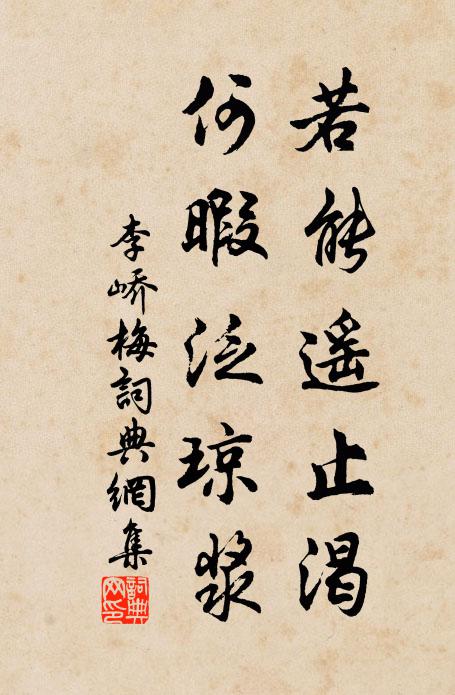 若能遥止渴
何暇泛琼浆
李峤梅詞典網集
詞典